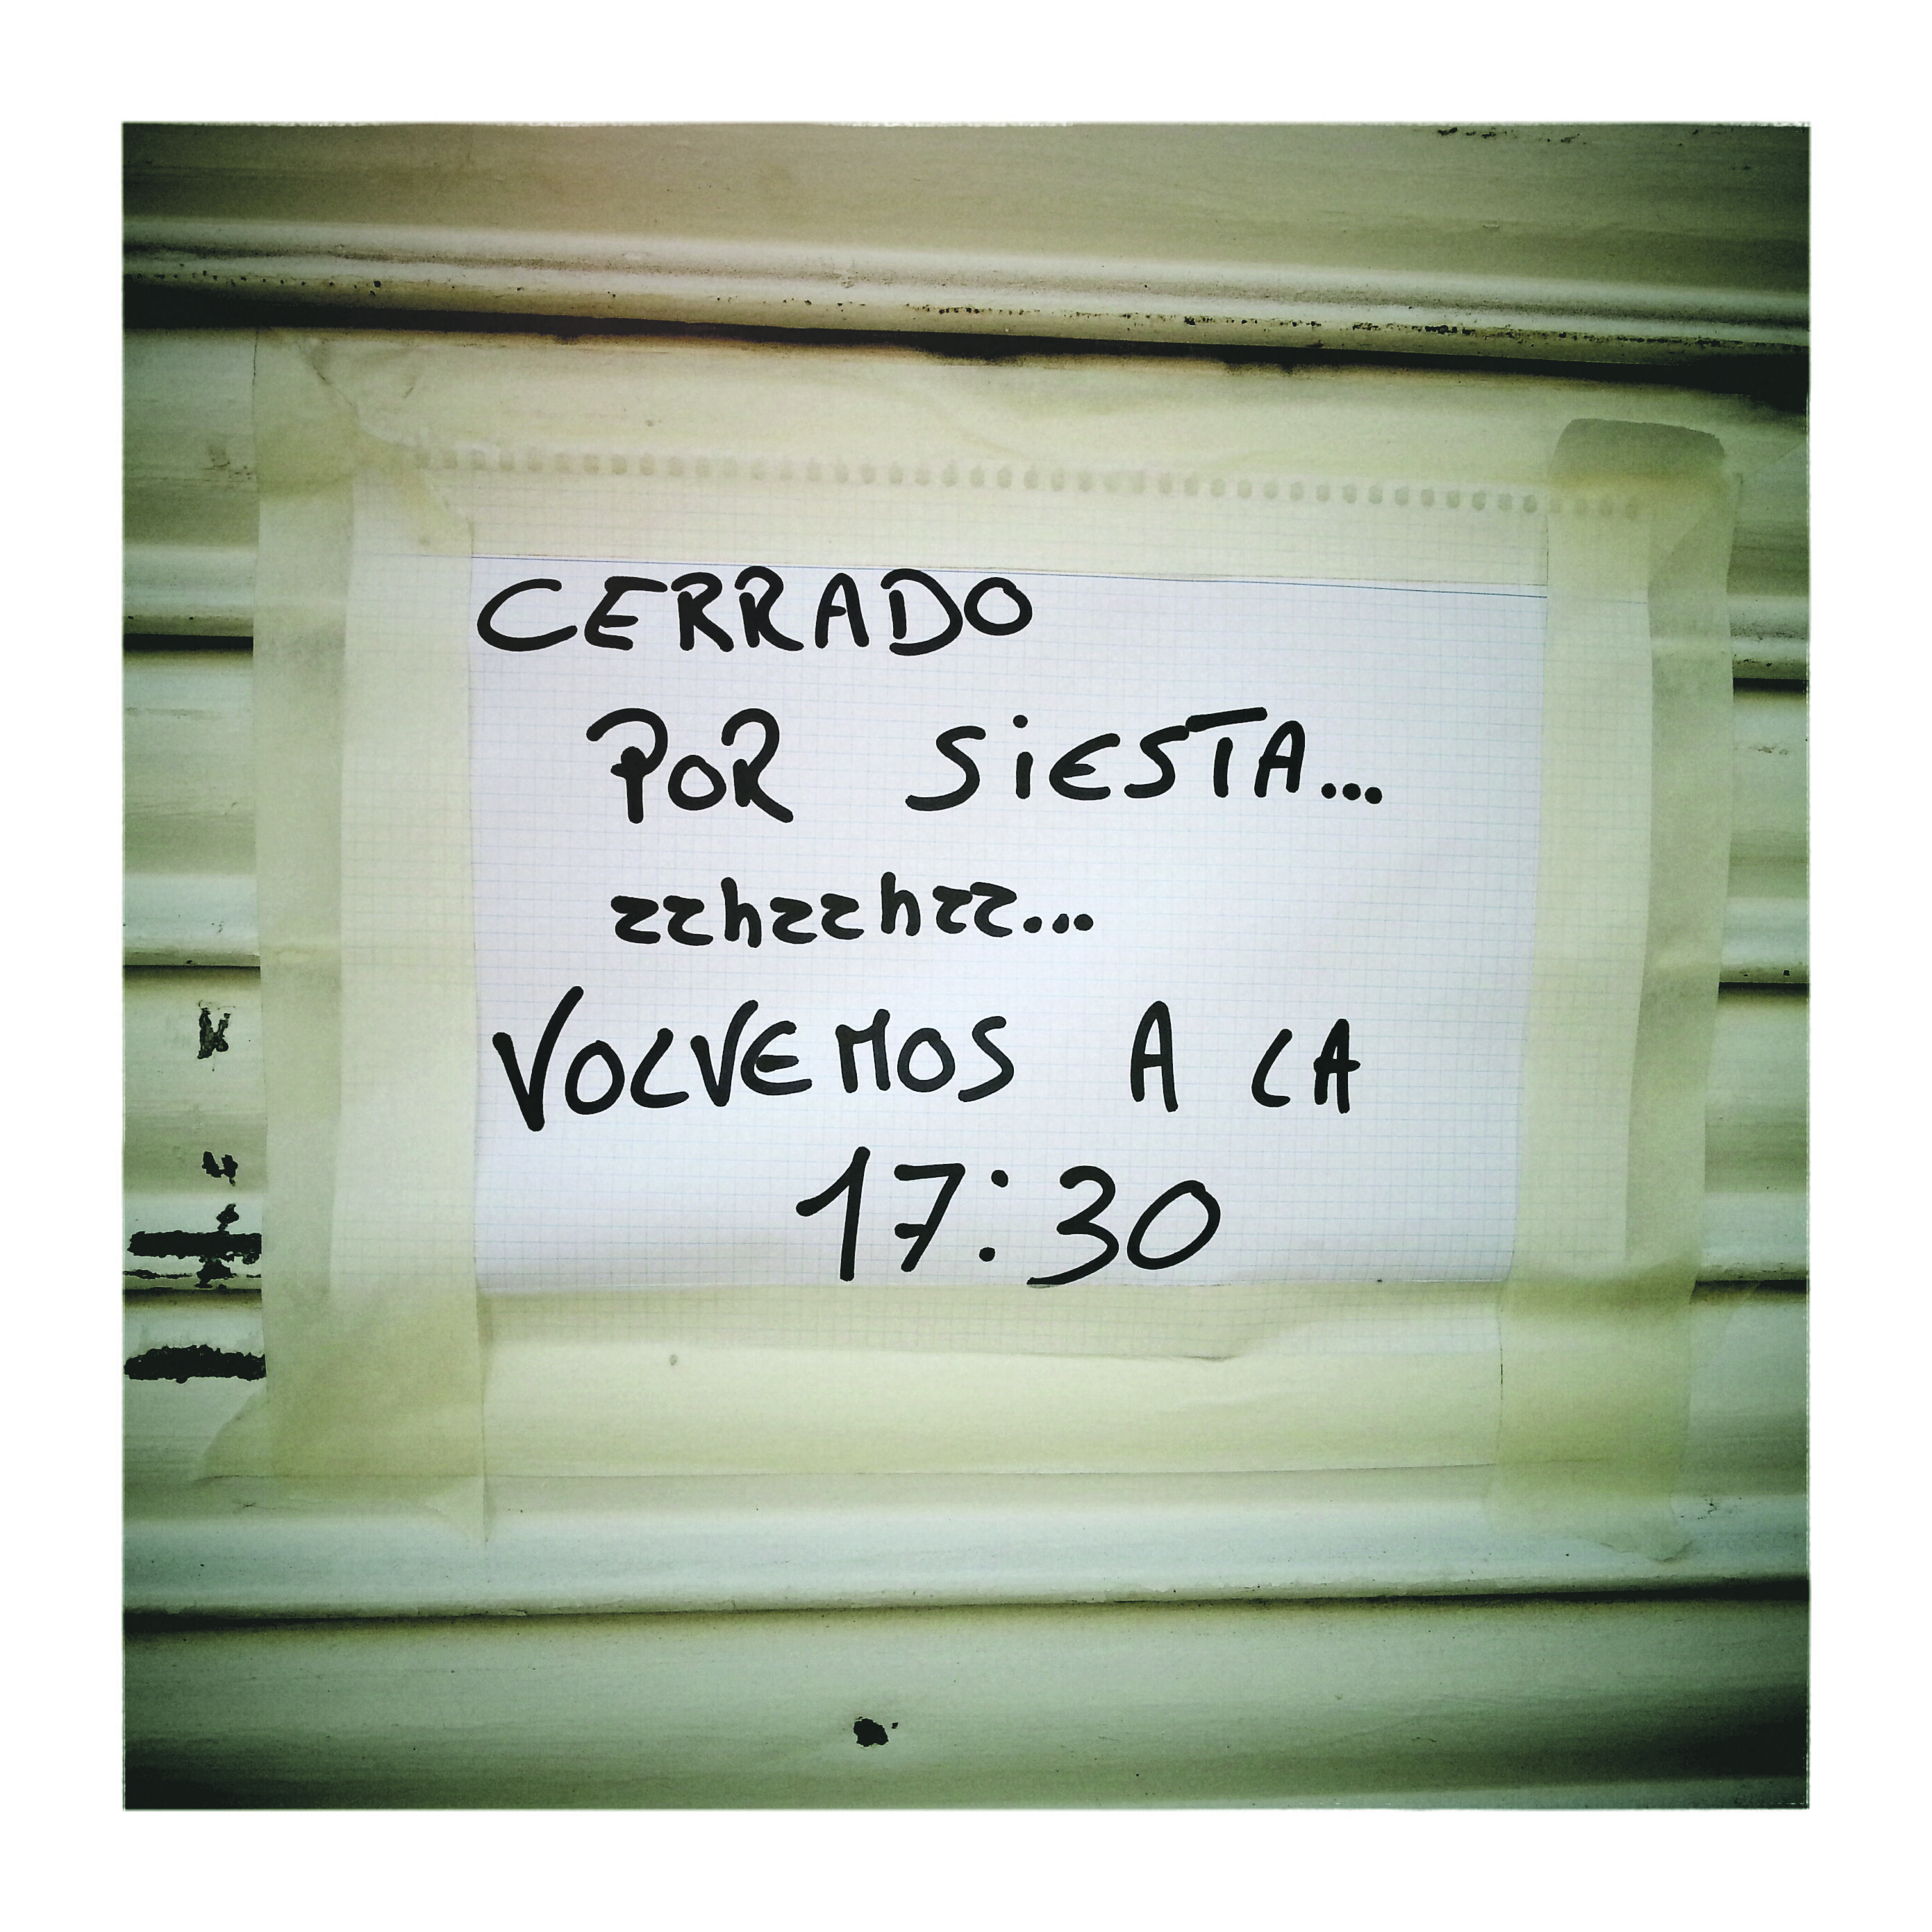 CERRADO
POR SIESTA...
zzhzzhzz...
VOLVEMOS A LA
17:30